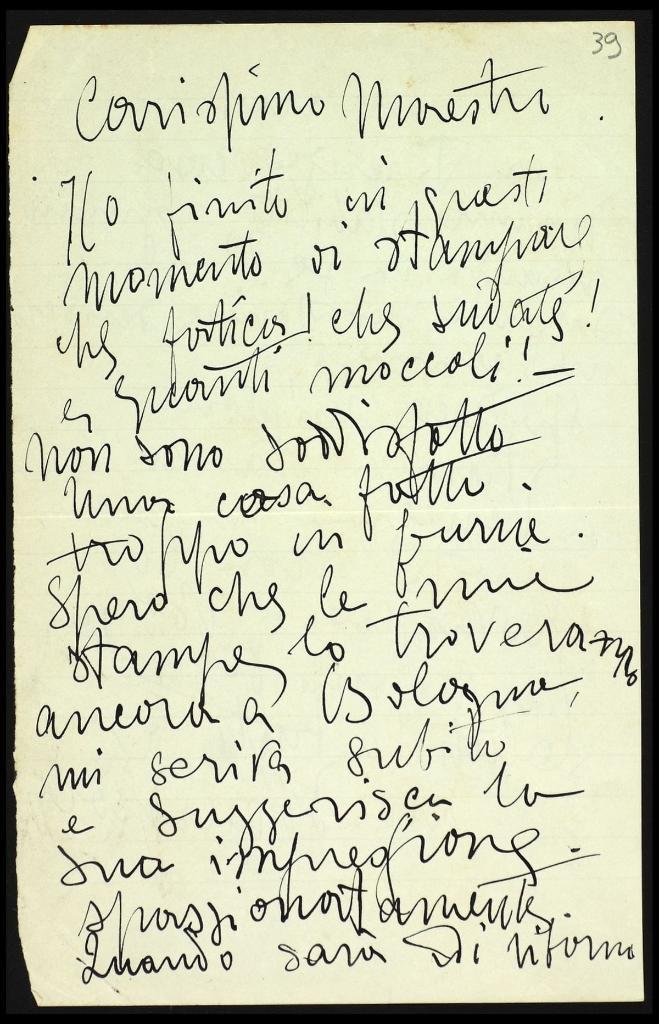 39
Carissimo Maestro.
Ho finito in questi
momento di stampare
che fatica! che sudate!
e quanti moccoli! –
non sono soddisfatto
una cosa fatta
troppo in furia.
Spero che le mie
stampe lo troveranno
ancora a Bologna,
mi scriva subito
e suggerisca la
sua impressione.
spassionatamente.
Quando sarà di ritorno